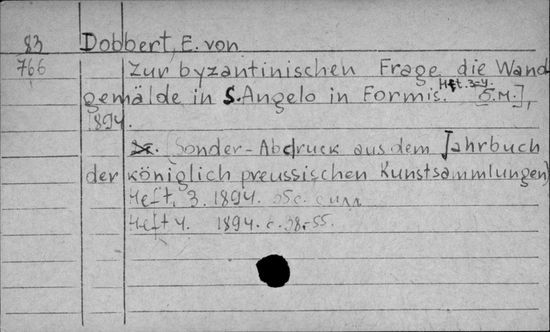 83 Dobbert, E. von
766 Zur byzantinischen Frage, die Wand
gemälde in S. Angelo in Formis. Hft. 3-4. S.M.],
1894.
[Sonder-Abdruck aus dem Jahrbuch
der königlich preussischen Kunstsammlungen]
Heft. 3. 1894. 35 c.
Heft 4. 1894. c. 38-55.